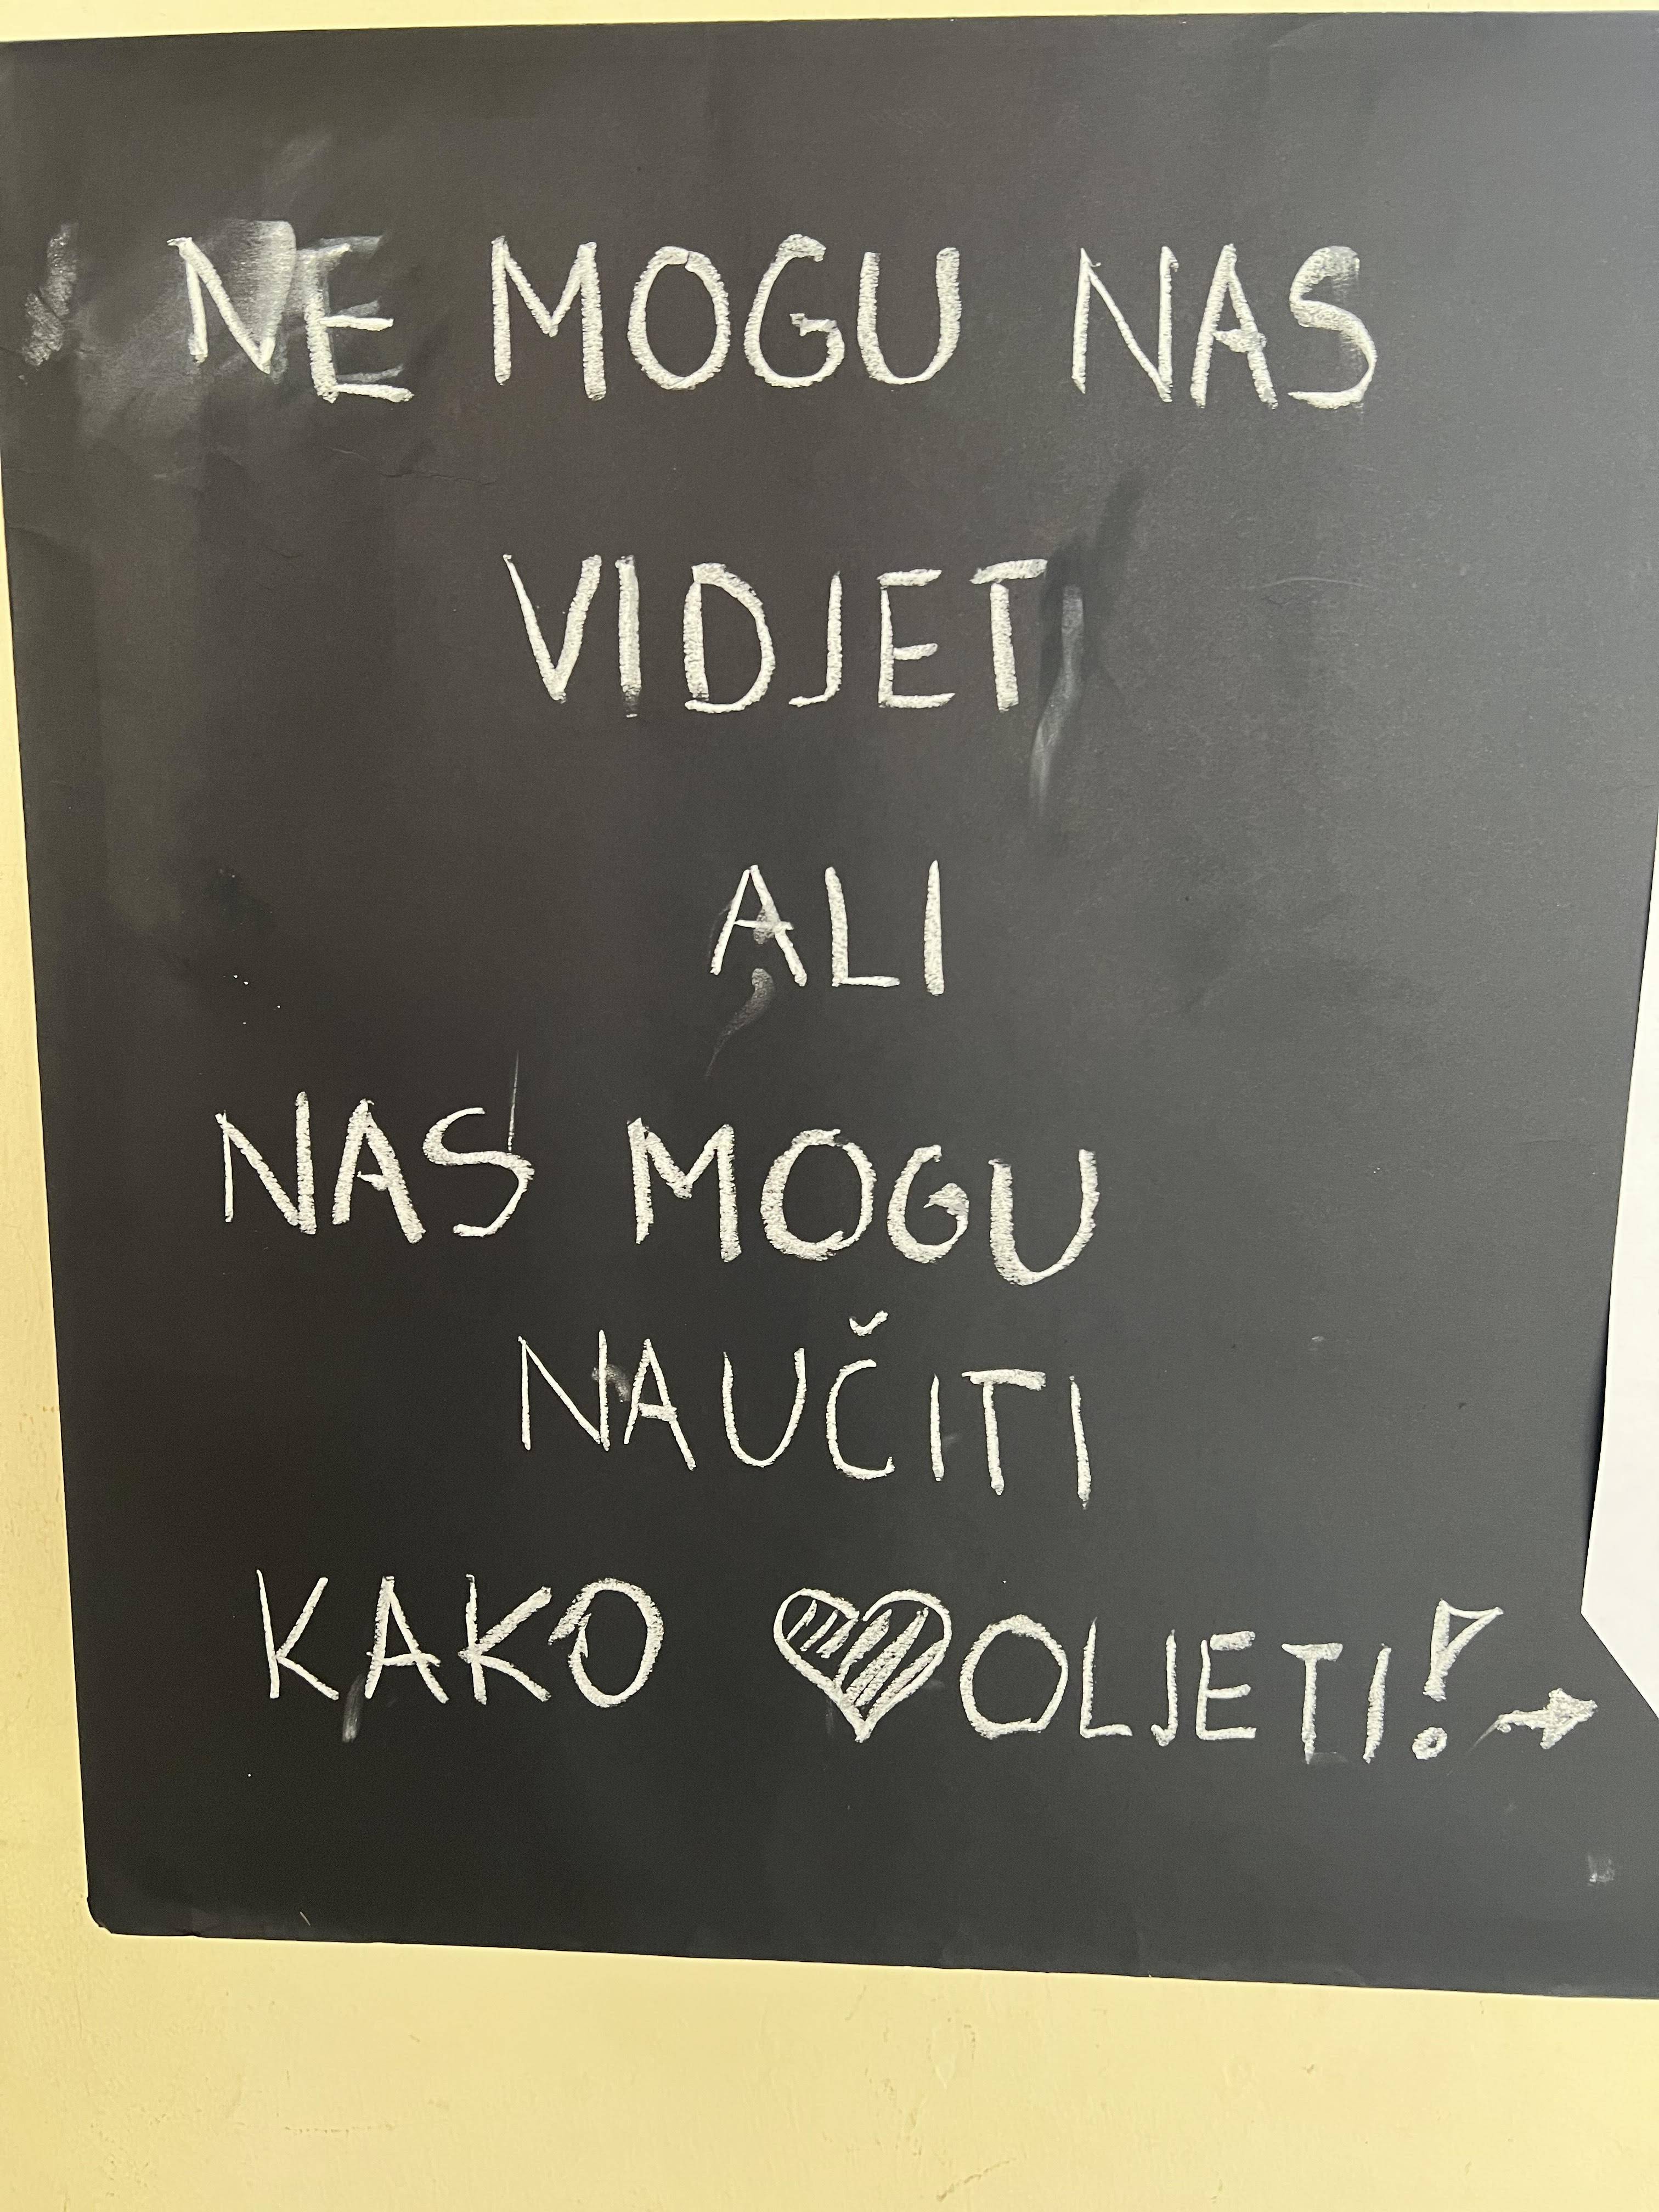 NE MOGU NAS
VIDJET
ALI
NAS MOGU
NAUČITI
KAKO ♥OLJETI!